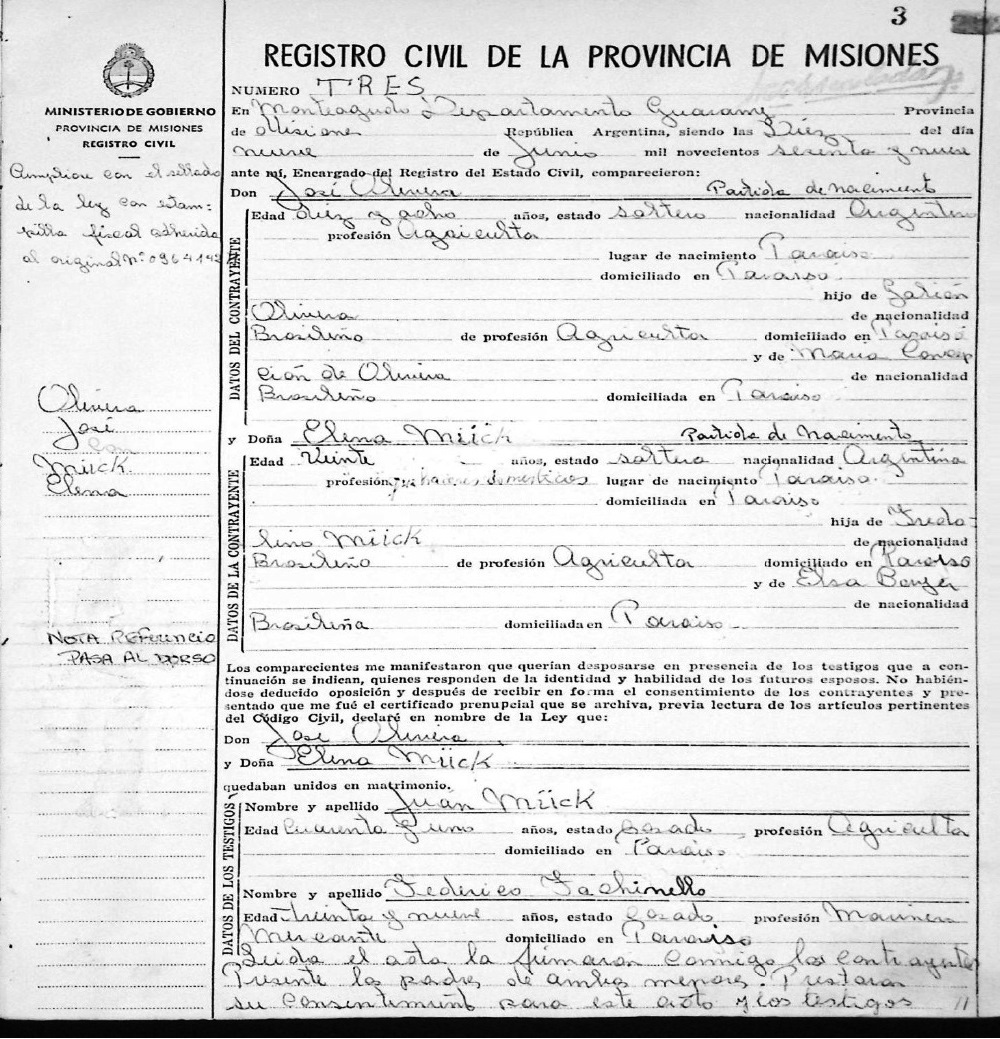 3
REGISTRO CIVIL DE LA PROVINCIA DE MISIONES
NUMERO TRES
MINISTERIO DE GOBIERNO
PROVINCIA DE MISIONES
REGISTRO CIVIL
En Monteagudo Departamento Guarany Provincia
de Misiones República Argentina, siendo las Diez del día
nueve de Junio mil novecientos sesenta y nueve
ante mí, Encargado del Registro del Estado Civil, comparecieron:
Don José Olivera Partida de nacimient
Cumpliose con el sellado
de la ley con estam=
pilla fiscal adherida
al original Nº
Edad diez y ocho años, estado soltero nacionalidad Argentino
profesión Agriculta
lugar de nacimiento Paraiso
domiciliado en Paraiso
hijo de
Olivera de nacionalidad
Brasileño de profesión Agriculta domiciliado en Paraiso
y de Maria Concep
ción de Olivera de nacionalidad
Brasileña domiciliada en Paraiso
DATOS DEL CONTRAYENTE
Olivera
José
con
Mück
Elena
y Doña Elena Mück Partida de nacimento
Edad Veinte años, estado soltera nacionalidad Argentina
profesión quehaceres domesticos lugar de nacimiento Paraiso
domiciliada en Paraiso
hija de Fredo-
lino Mück de nacionalidad
Brasileño de profesión Agriculta domiciliado en Paraiso
y de Elsa
de nacionalidad
Brasileña domiciliada en Paraiso
DATOS DE LA CONTRAYENTE
NOTA REFERENCIA
PASA AL DORSO
Los comparecientes me manifestaron que querían desposarse en presencia de los testigos que a con-
tinuación se indican, quienes responden de la identidad y habilidad de los futuros esposos. No habién-
dose deducido oposición y después de recibir en forma el consentimiento de los contrayentes y pre-
sentado que me fué el certificado prenupcial que se archiva, previa lectura de los artículos pertinentes
del Código Civil, declaré en nombre de la Ley que:
Don José Olivera
y Doña Elena Mück
quedaban unidos en matrimonio.
Nombre y apellido Juán Mück
Edad Cuarenta y uno años, estado Casado profesión Agriculta
domiciliado en Paraiso
Nombre y apellido Federico Fachinello
Edad Treinta y nueve años, estado Casado profesión Marinera
Mercante domiciliado en Paraiso
DATOS DE LOS TESTIGOS
Leida el acta la firmaron conmigo los contrayentes
Presente los padres de ambos menores. Prestaron
su Consentimiento para este acto y los testigos //